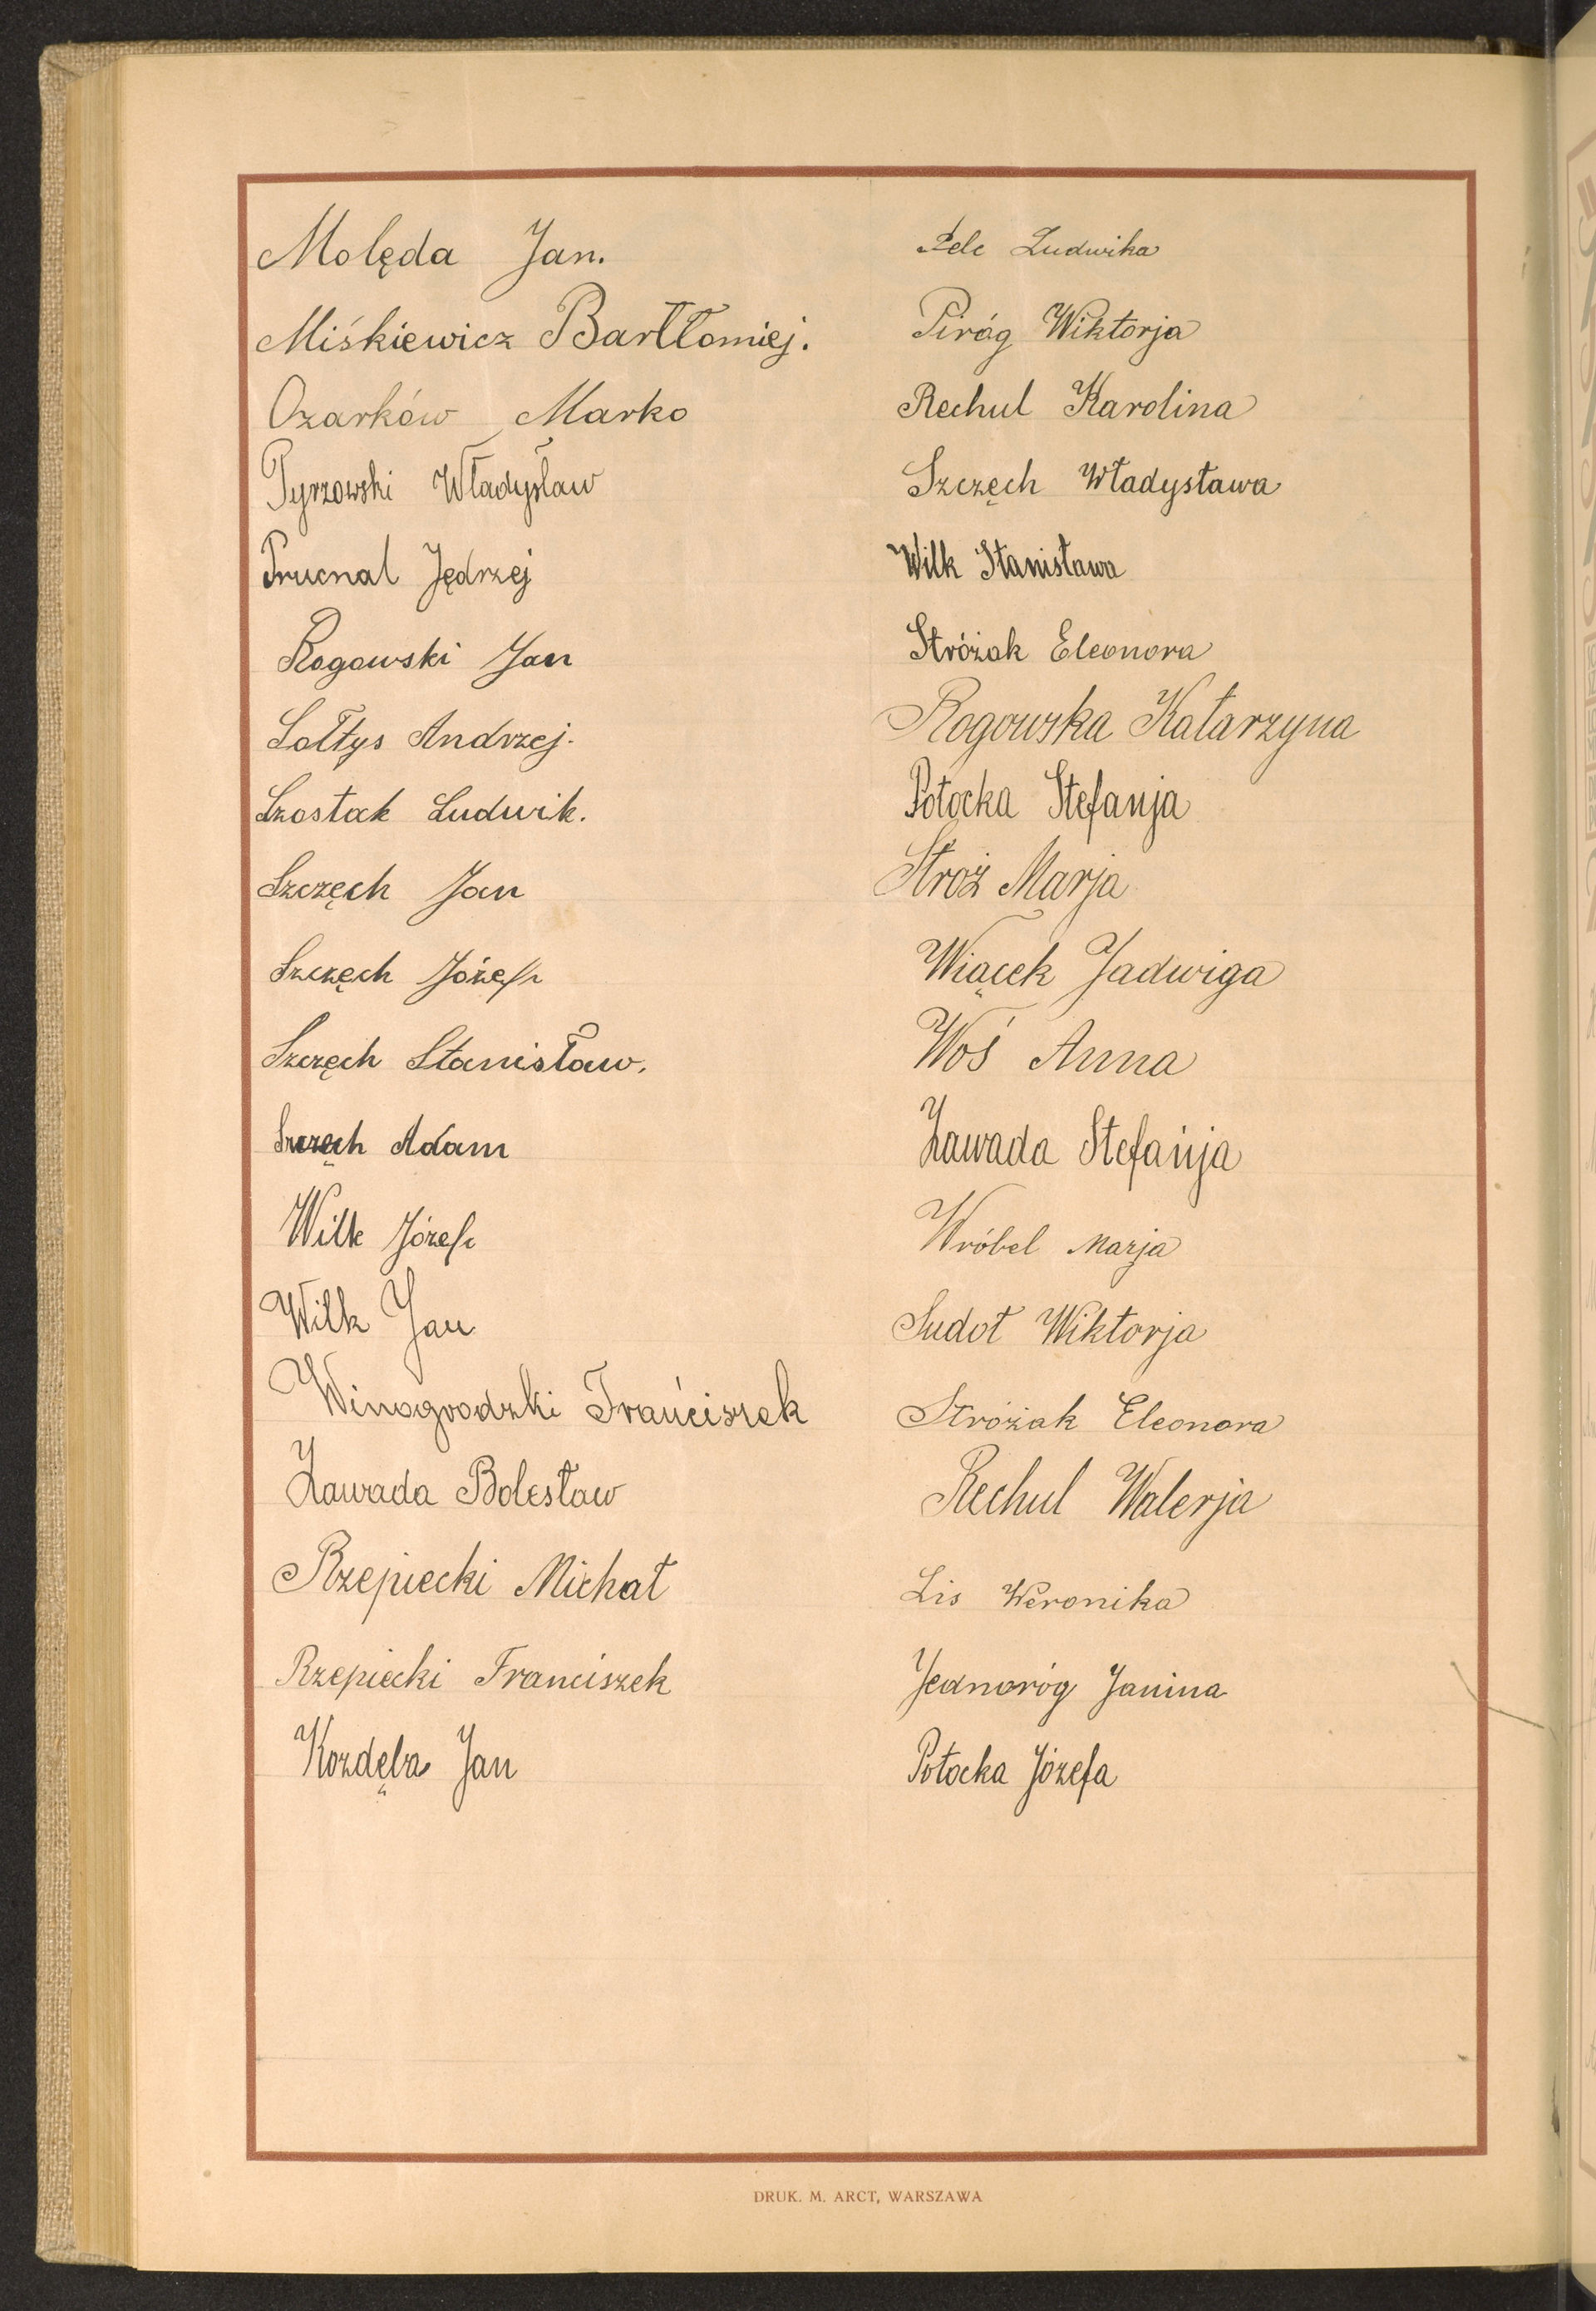 Molęda Jan.
Miśkiewicz Bartłomiej.
Ozarków Marko
Pyrzowski Władysław
Prucnal Jędrzej
Rogowski Jan
Sołtys Andrzej.
Szostak Ludwik.
Szczęch Jan
Szczęch Józef
Szczęch Stanisław.
Szczęch Adam
Wilk Józef
Wilk Jan
Winogrodzki Frańciszek
Zawada Bolesław
Rzepiecki Michał
Rzepiecki Franciszek
Kozdęba Jan
Pelc Ludwika
Piróg Wiktorja
Rechul Karolina
Szczęch Władysława
Wilk Stanisława
Stróżak Eleonora
Rogowska Katarzyna
Potocka Stefanja
Stróż Marja
Wiącek Jadwiga
Woś Anna
Zawada Stefańja
Wróbel Marja
Sudoł Wiktorja
Stróżak Eleonora
Rechul Walerja
Lis Weronika
Jednoróg Janina
Potocka Józefa
DRUK. M. ARCT, WARSZAWA